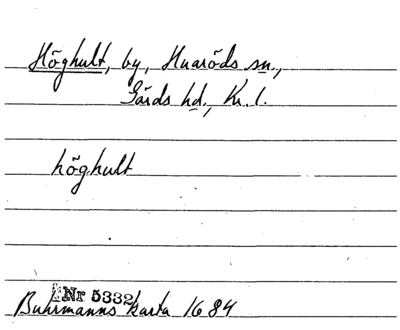 Höghult, by, Huaröds sn.,
Gärds hd., Kr. l.
höghult
Nr 5332
Buhrmanns karta 1684